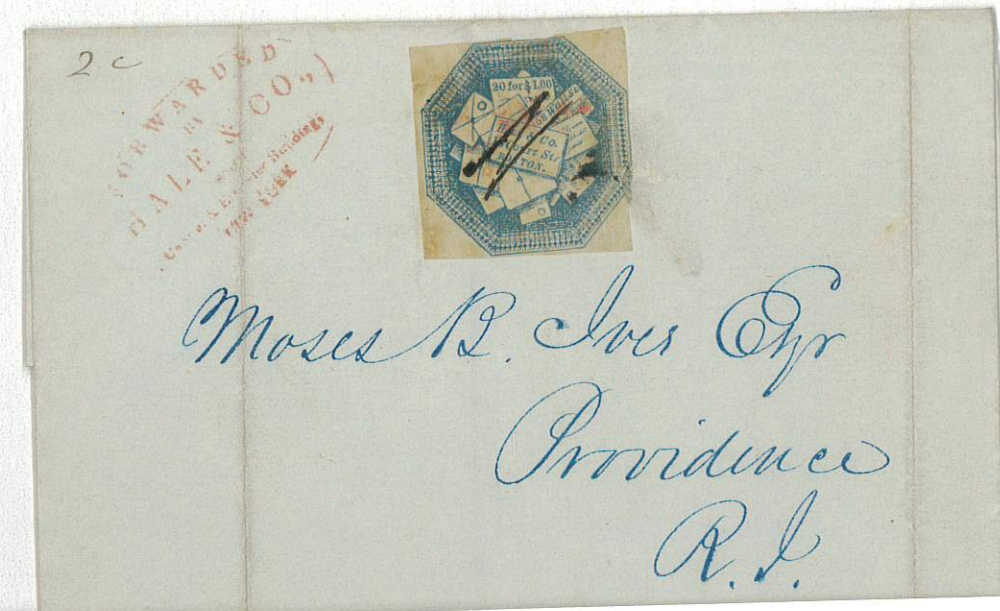 2c
FORWARDED
BY
HALE & CO.,
Buildings
NEW YORK
20 for $1.00
& Co.
Court Str
BOSTON.
Moses B. Ives Esqr
Providence
R. I.